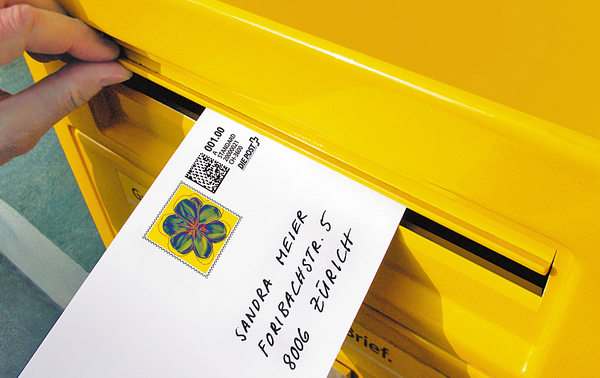 001.00
A
STANDARD
CH-3800
DIE POST
SANDRA MEIER
FORIBACHSTR. 5
8006 ZÜRICH
Brief.